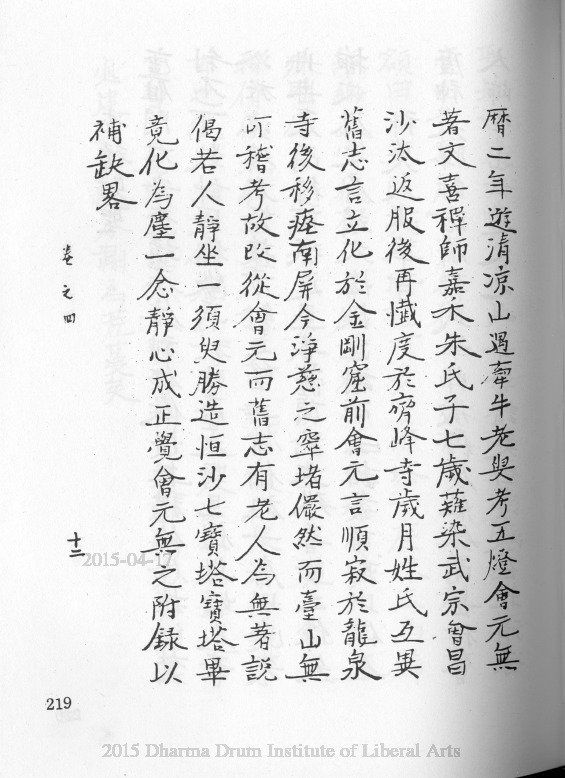 曆二年遊清凉山過牽牛老與考五燈會元無
著文喜禪師嘉禾朱氏子七歲薙染武宗會昌
沙汰返服後再懺度於齊峰寺歲月姓氏互異
舊志言立化於金剛窟前會元言順寂於龍泉
寺後移瘞南屏今淨慈之窣堵儼然而臺山無
可稽考故改從會元而舊志有老人為無著說
偈若人靜坐一須臾勝造恒沙七寶塔寶塔畢
竟化為塵一念靜心成正覺會元無之附錄以
補缺畧
卷之四
十二
219
2015-04-17
2015 Dharma Drum Institute of Liberal Arts